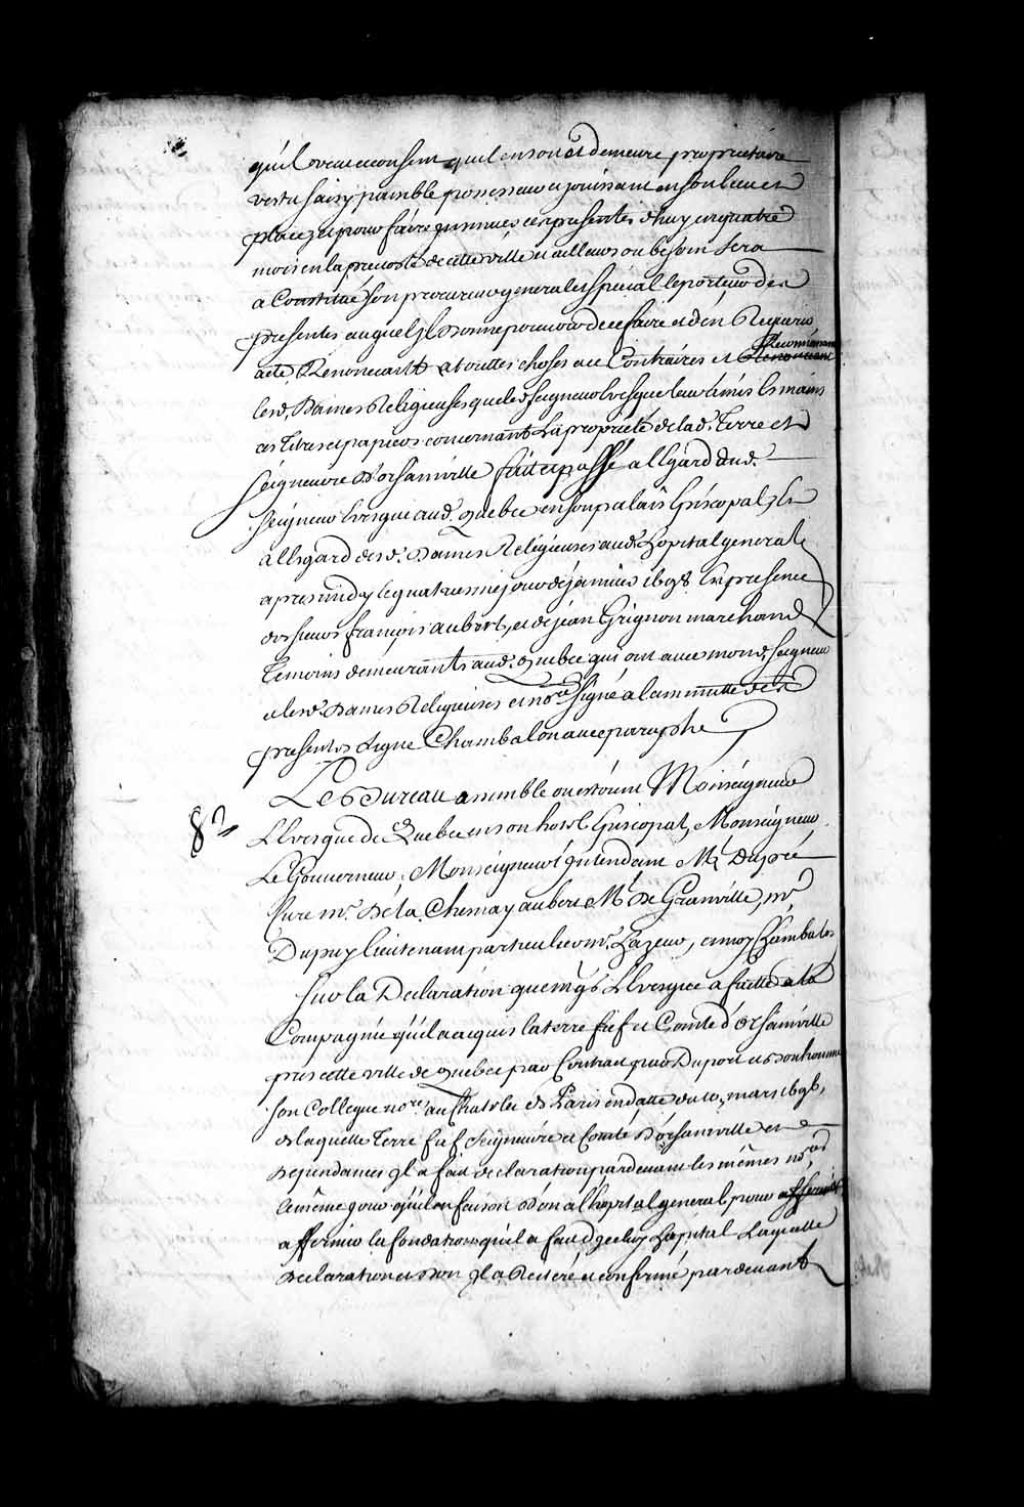 qu'il veut et consent qu'il en soit et demeure propriétaire
vestu saisy paisible possesseur et jouissant en son lieu et
place et pour faire insinuer ces presentes d'huy en quatre
mois en la prevosté de cette ville et ailleurs ou besoin sera
a Constitué son procureur general et special le porteur des
presentes auquel Il donne pouvoir de ce faire et d'en Requerir
acte, Renonceant à touttes choses a ce Contraires et Renonceant Reconnoissant
lesd. Dames Religieuses que led. seigneur Evesque leur à mis Es mains
les Titres et papiers concernant La propriété de lad. Terre et
seigneurie D'orsainville fait et passé a l'Egard dud.
seigneur Evesque aud. Quebec en son palais Episcopal, Et
a l'Egard desd. Dames Religieuses aud. hopital general
apres midy le quatriesme jour de janvier 1698 En presence
des sieurs françois aubert, et de jean Grignon marchand
Temoins demeurants aud. Quebec qui ont avec mond. seigneur
et lesd. Dames Religieuses et no.re signé a la minutte des
presentes signé Chambalon avec paraphe
82
Le Bureau assemblé ou estoient Monseigneur
L'Evesque de Quebec en son hotel Episcopal, Monseigneur
Le Gouverneur, Monseigneur l'Intendant Mr. Dupré
Curé mr. De la Chenay aubert Mr. De Granville, mr.
Dupuy lieutenant particulier mr. hazeur, et moy Chambalon
sur la Declaration que mgr. L'Evesque a faitte a la
Compagnie qu'il a acquis la terre fief et Comté d'orsainville
pres cette ville de Quebec par Contrat par Duport et
son Collegue no.re au Chatelet de Paris en datte du 10, mars 1696,
de laquelle Terre fief seigneurie et Comté D'orsainville et
Dependances Il a fait declaration pardevant les mêmes no.res
le même jour qu'il en faisoit Don a l'hopital general pour
affermir la fondation qu'il a fait d'Iceluy hopital Laquelle
Declaration et Don Il a Reiteré et confirmé pardevant